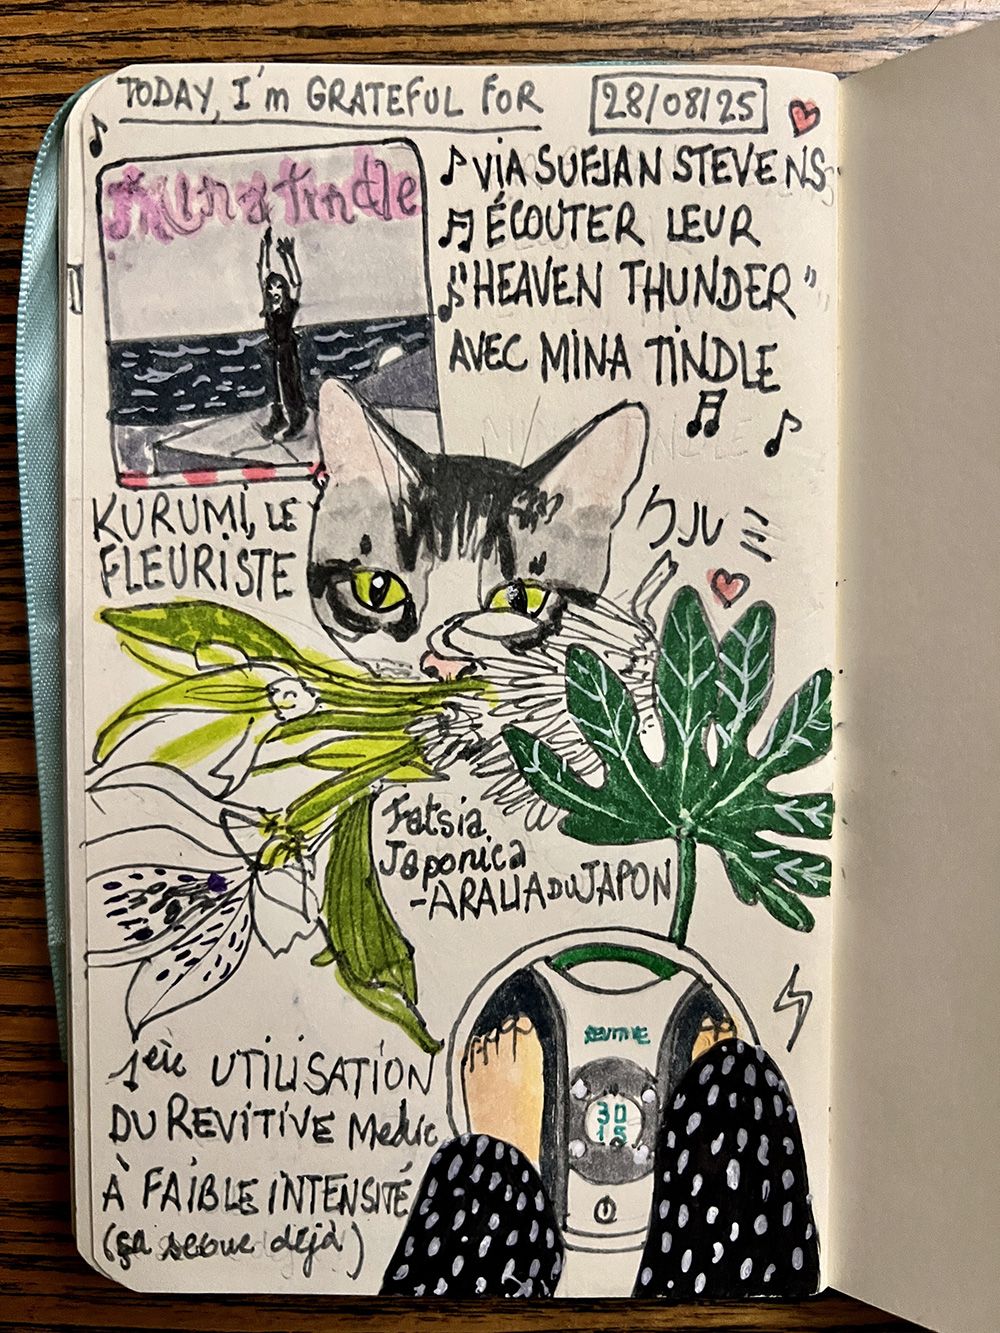 TODAY, I'm GRATEFUL FOR
28/08/25
mina tindle
VIA SUFJAN STEVENS
ÉCOUTER LEUR
"HEAVEN THUNDER"
AVEC MINA TINDLE
KURUMI, LE
FLEURISTE
Fatsia
Japonica
-ARALIA DU JAPON
REVITIVE
30
15
1ère UTILISATION
DU REVITIVE Medic
À FAIBLE INTENSITÉ
(ça secoue déjà)